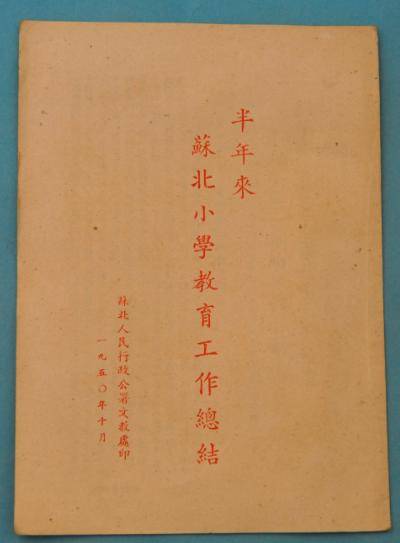 半年來
蘇北小學教育工作總結
蘇北人民行政公署文教處印
一九五〇年十月